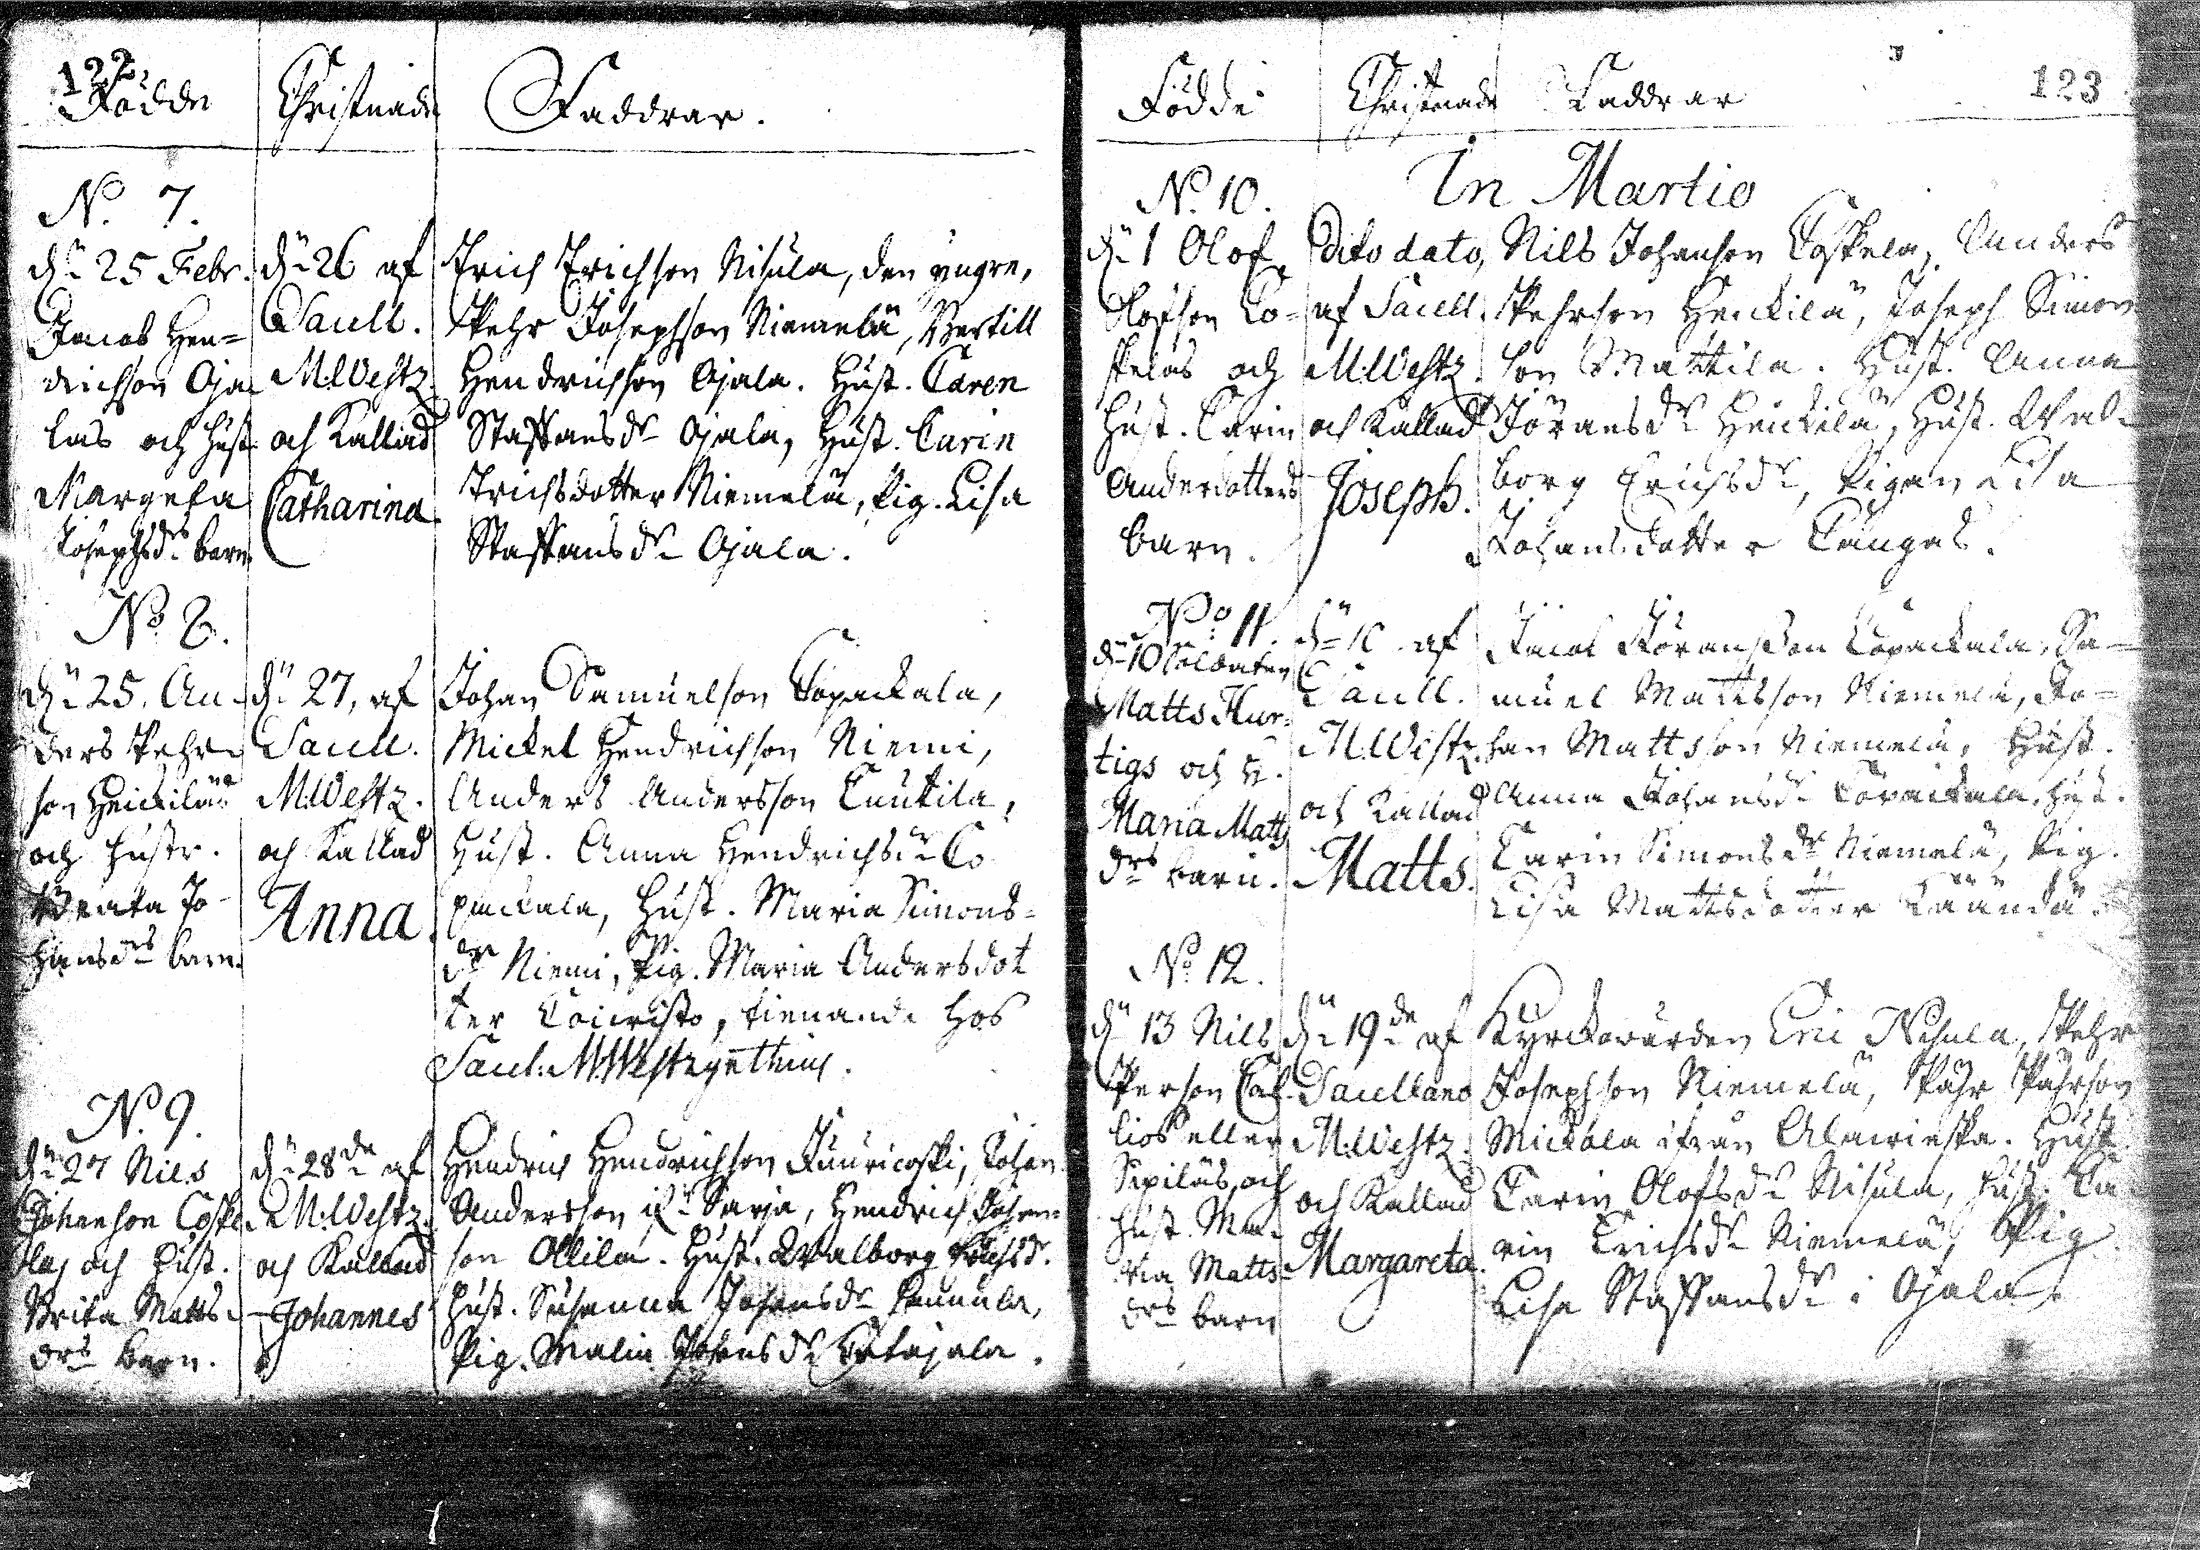 122
Födde
Christnade
Faddrar.
No. 7.
dn 25 Febr.
Jacob Hen=
drichson Oja
las och hust.
Margeta
Josephsdrs barn
dn 26 af
Sacell.
M. Westz.
och Kallad
Catharina
Erich Erichson Nisula, den yngre,
Pehr Josephson Niemelä, Bertill
Hendrichson Ojala. Hust. Caren
Staffansdr Ojala, Hust. Carin
Erichsdotter Niemelä, Pig. Lisa
Staffansdr Ojala.
No. 8.
dn 25. An-
ders Pehr-
son Heickiläs
och hustr.
Beata Jo-
hansdrs barn.
dn 27, af
Sacell.
M. Westz.
och Kallad
Anna.
Johan Samuelson
Mickel Hendrichson Niemi,
Anders Andersson
Hust. Anna Hendrichsdr
Hust. Maria Simons=
dr Niemi, Pig. Maria Andersdot
ter tienande hos
Sacel. M. Westzynthius.
No. 9.
dn 27 Nils
Johanson Coske
las och Hust.
Brita Matts-
drs barn.
dn 28de af
M. Westz.
och Kallad
Johannes
Hendrich Hendrichson Juuricoski, Johan
Andersson Sarja, Hendrich
son Ollila. Hust. Walborg Erichsdr.
Hust. Susanna Johansdr
Pig. Malin Johansdr Catajala.
123
Födde
Christnade
Faddrar
In Martio
No. 10.
dn 1 Olof
Olofson Co=
skelas och
Hust. Carin
Andersdotters
barn.
dito dato,
af Sacell.
M. Westz.
och Kallad
Joseph.
Nils Johanson Coskela, Anders
Pehrson Heickilä, Joseph Simon
son Mattila. Hust. Anna
Göransdr Heickilä, Hust. Wal-
borg Erichsdr, Pigan Lisa
Johansdotter Cangas.
No. 11.
dn 10 Soldaten
Matts Hur=
tigs och h.
Maria Matts
drs barn.
dn af
Sacell.
M. Westz.
och Kallad
Matts.
Jacob Göransson Sa=
muel Mattsson Niemelä, Jo=
han Mattsson Niemelä, Hust.
Anna Johansdr hust.
Carin Simonsdr Niemelä, Pig.
Lisa Mattsdotter
No. 12.
dn 13 Nils
Person Cal-
lios eller
Sipiläs, och
Hust. Ma-
ria Matts-
drs barn
dn 19de af
Sacellano
M. Westz.
och Kallad
Margareta.
Kyrckowärden Eric Nisula, Pehr
Josephson Niemelä, Pähr Pährson
Mickola ifrån Alawieska. Hust
Carin Olofsdr Nisula, hust. Ca
rin Erichsdr Niemelä, Pig
Lisa Staffansdr i Ojala.